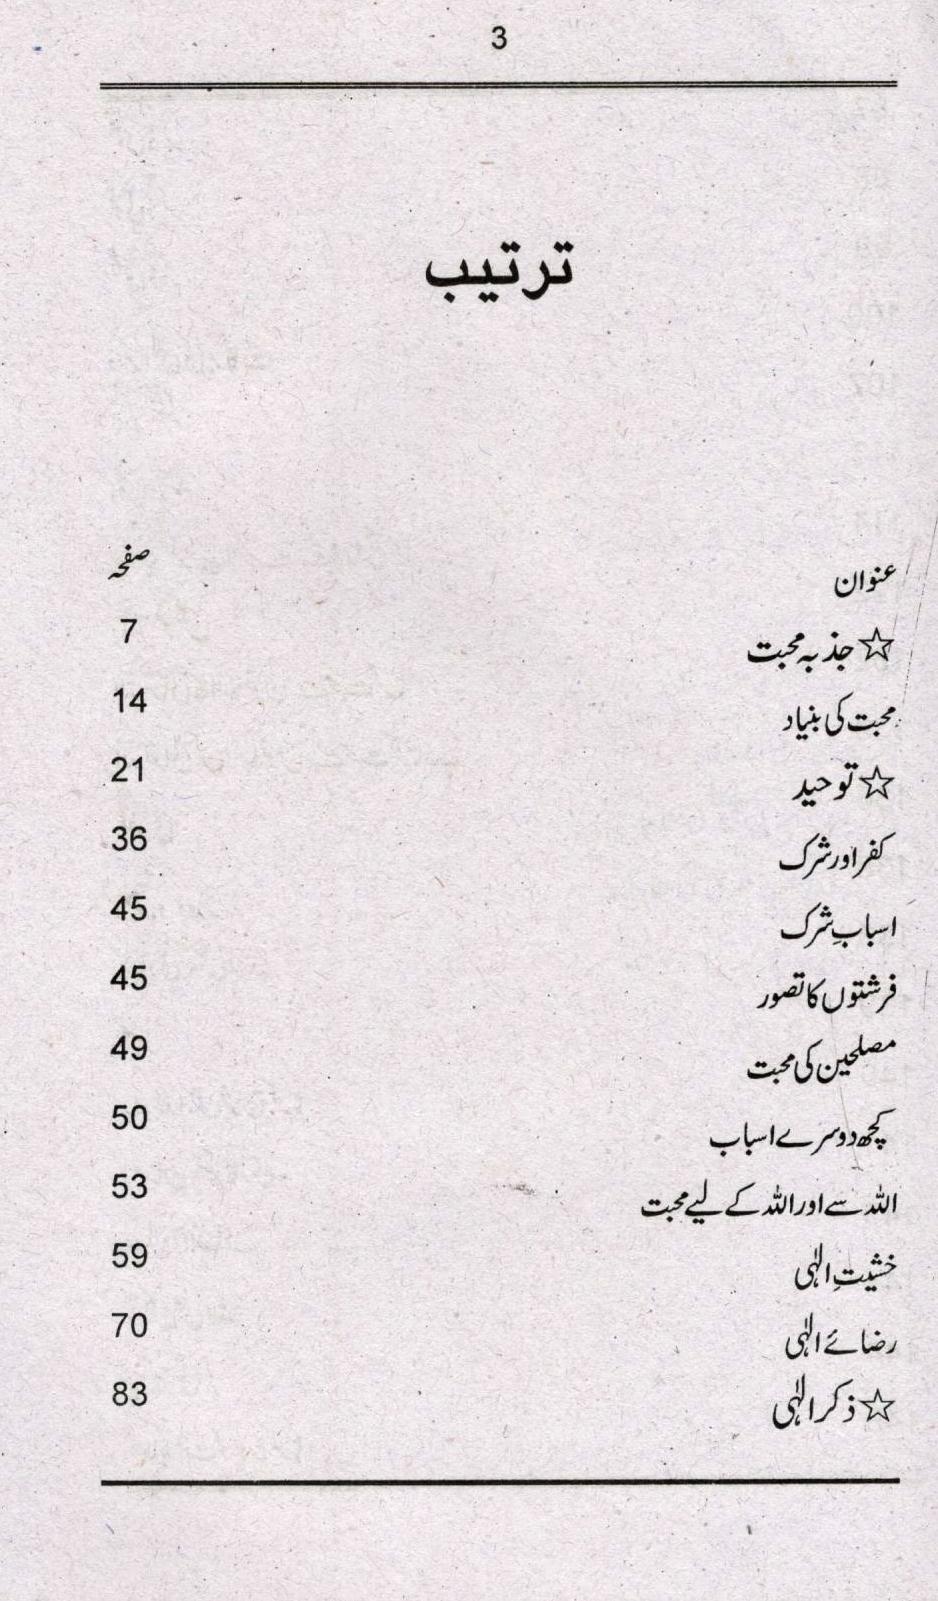 3
ترتیب
عنوان صفحہ
☆ جذبہ محبت 7
محبت کی بنیاد 14
☆ توحید 21
کفر اور شرک 36
اسبابِ شرک 45
فرشتوں کا تصور 45
مصلحین کی محبت 49
کچھ دوسرے اسباب 50
اللہ سے اور اللہ کے لیے محبت 53
خشیتِ الٰہی 59
رضائے الٰہی 70
☆ ذکر الٰہی 83